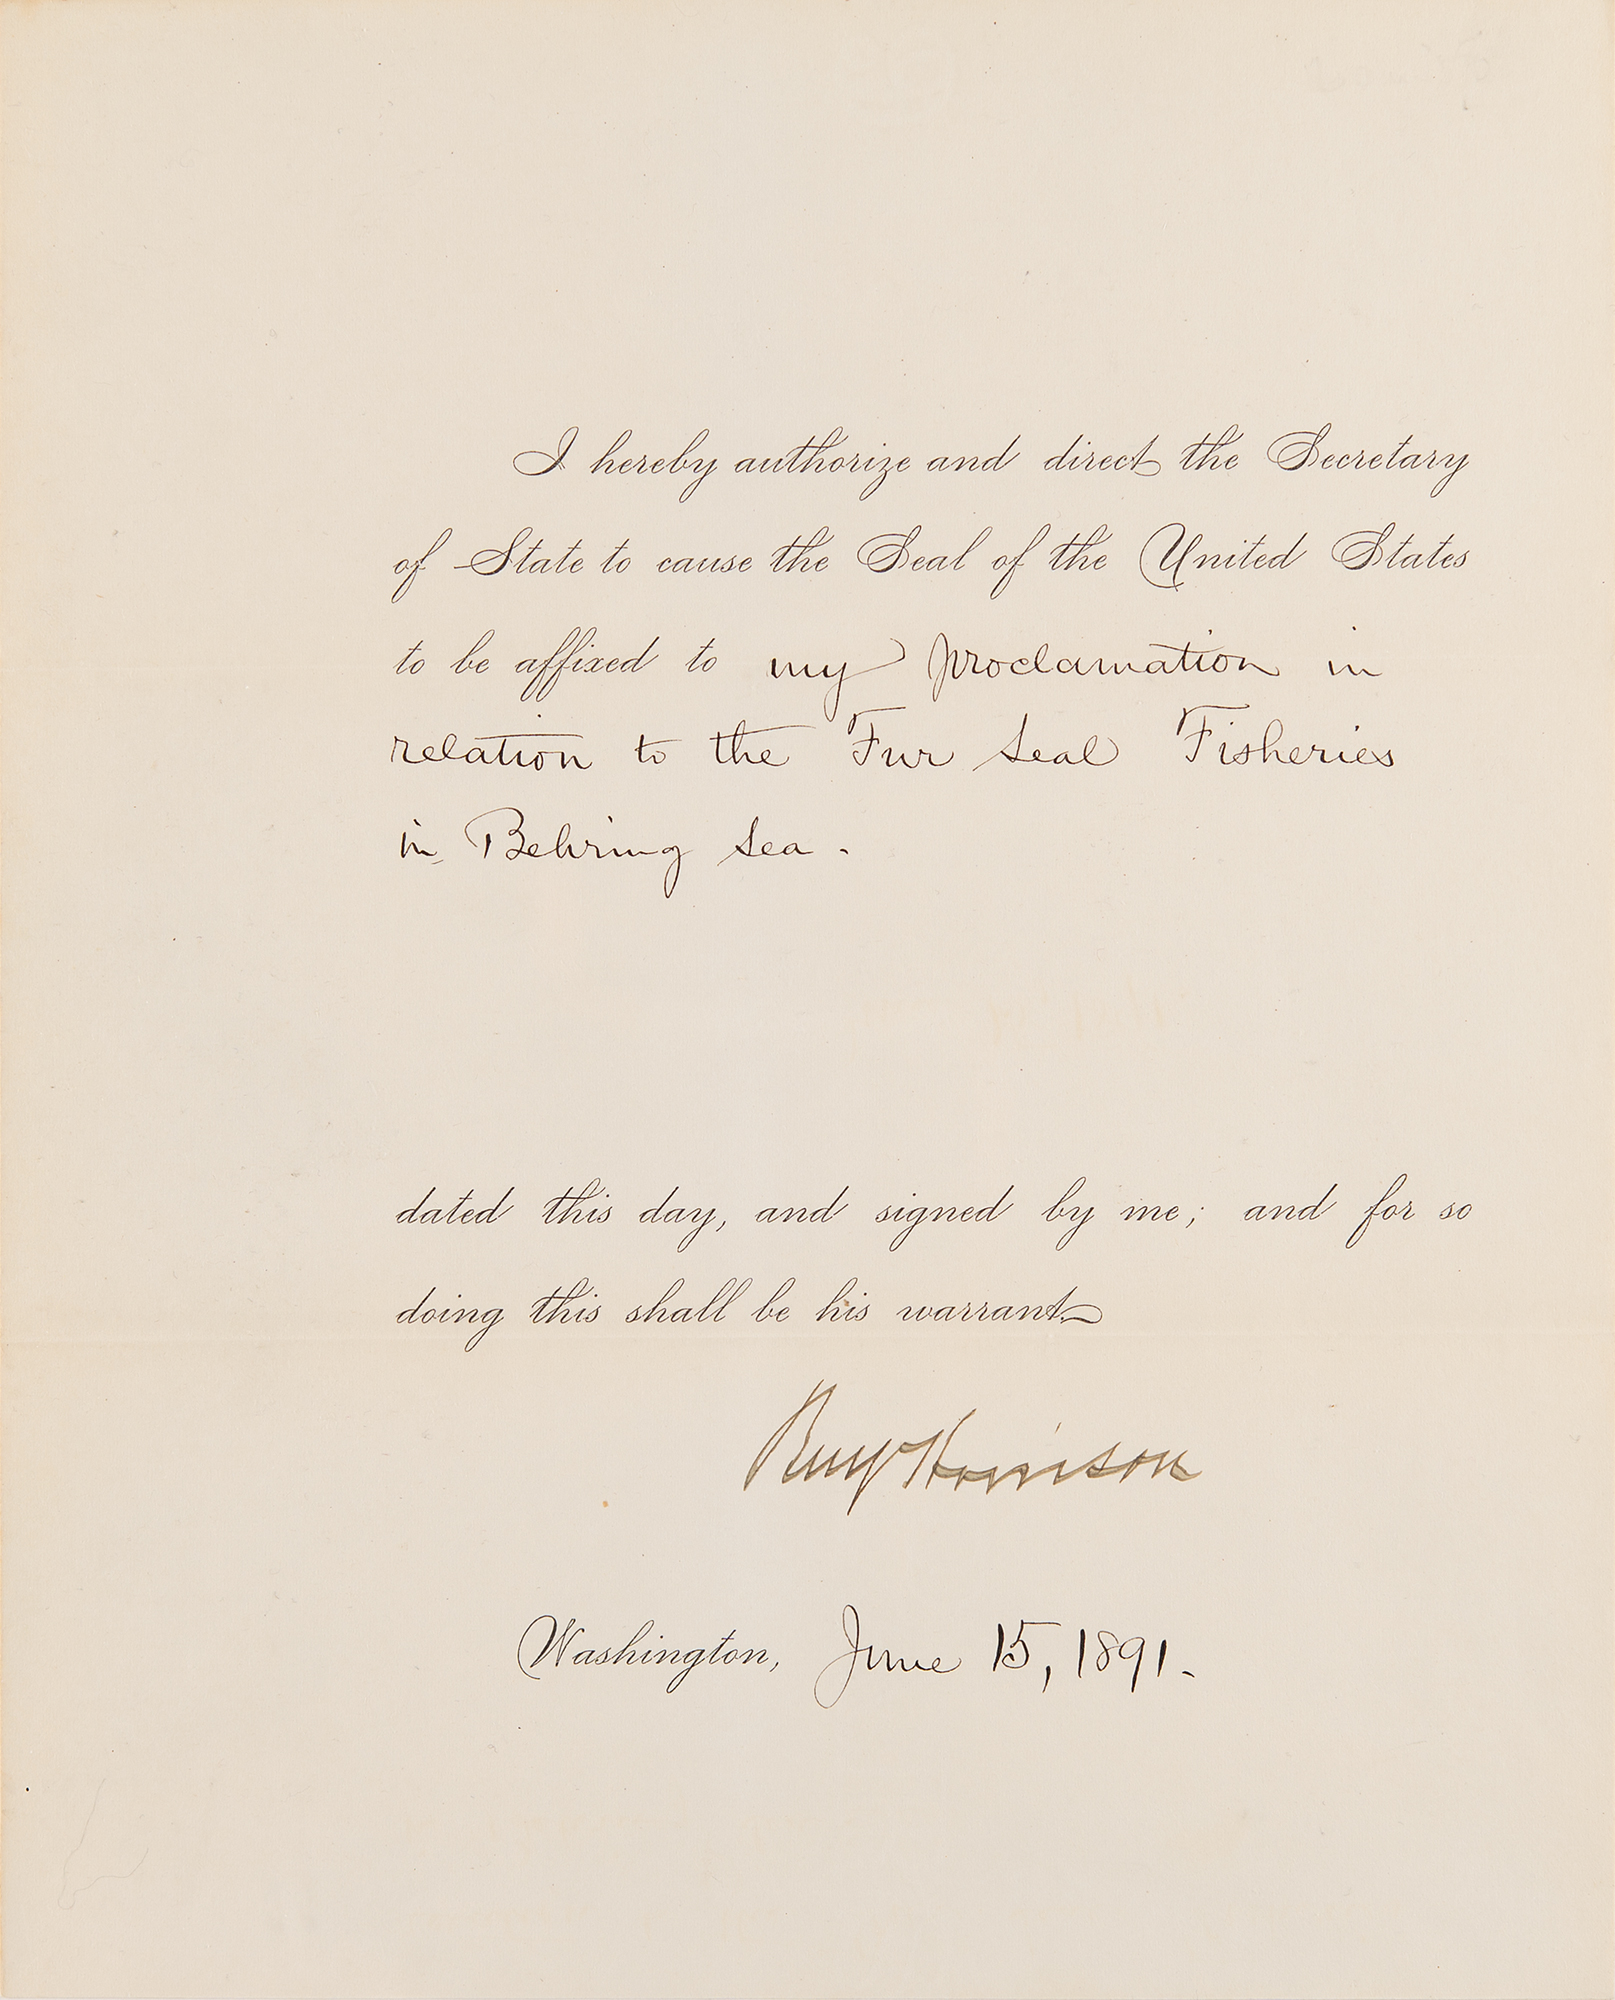 I hereby authorize and direct the Secretary
of State to cause the Seal of the United States
to be affixed to my proclamation in
relation to the Fur Seal Fisheries
in Behring Sea.
dated this day, and signed by me; and for so
doing this shall be his warrant.
Benj Harrison
Washington, June 15, 1891.